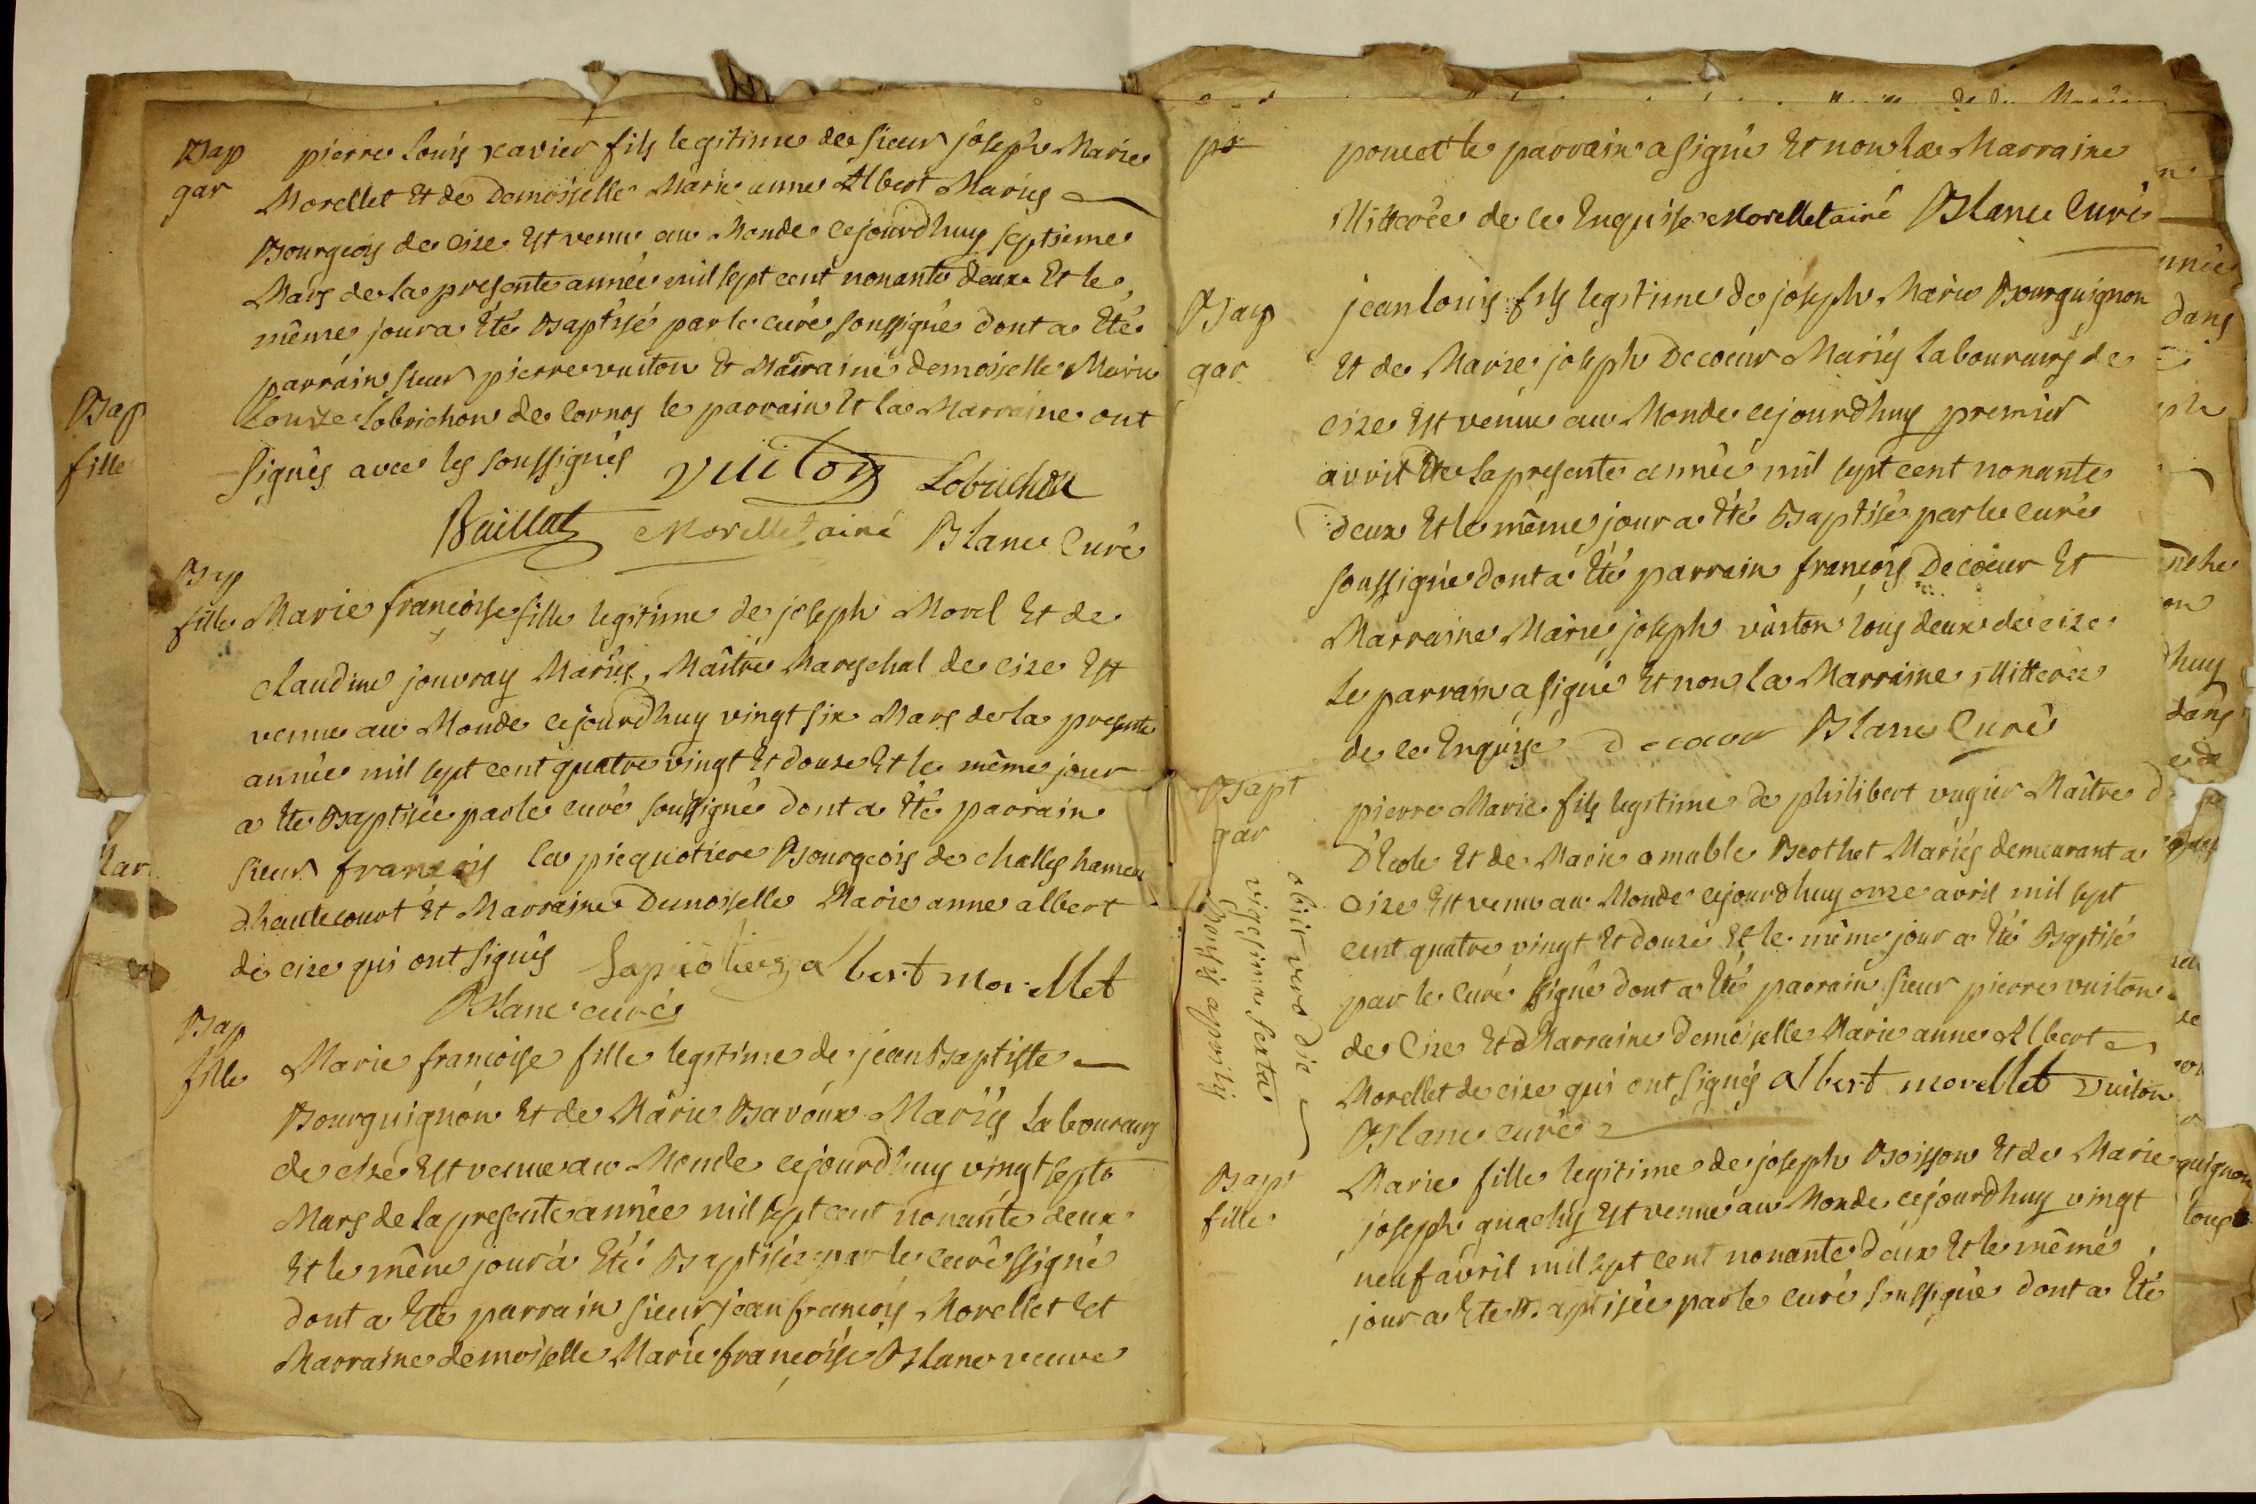 Bap
gar
pierre louis xavier fils legitime de sieur joseph Marie
Morellet Et de Demoiselle Marie anne Albert Mariés
Bourgeois de cize Est venu au Monde cejourdhuy septieme
Mars de la presente année mil sept cent nonante deux Et le
même jour a Eté Baptisé par le curé soussigné dont a Eté
parrain sieur pierre vuiton Et Marraine demoiselle Marie
Louise Lobrichon de Cornos le parrain Et la Marraine ont
signés avec les soussignés vuiton Lobrichon
Baillat Morellet ainé Blanc Curé
Bap
fille
Marie françoise fille legitime de joseph Morel Et de
claudine jouvray Mariés, Maître Mareschal de cize Est
venue au Monde cejourdhuy vingt six Mars de la presente
année mil sept cent quatre vingt Et douze Et le même jour
a Eté Baptisée par le curé soussigné dont a Eté parrain
sieur françois la picquotiere Bourgeois de challes hameau
dhautecourt Et Marraine Demoiselle Marie anne albert
de cize qui ont signés albert morellet
Blanc curé
Bap
fille
Marie francoise fille legitime de jean Baptiste
Bourguignon Et de Marie Bavoux Mariés Laboureurs
de cize Est venue au Monde cejourdhuy vingt sept
Mars de la presente année mil sept cent nonante deux
Et le même jour a Eté Baptisée par le curé ssigné
dont a Eté parrain sieur jean françois Morellet Et
Marraine demoiselle Marie françoise Blanc veuve
Bap
fille
lar
poncet le parrain a signé Et non la Marraine
illitterée de ce Enquise Morellet ainé Blanc Curé
Bap
gar
jean louis fils legitime de joseph Marie Bourguignon
Et de Marie joseph Decoeur Mariés laboureurs de
cize Est venu au Monde cejourdhuy premier
avril De la presente année mil sept cent nonante
deux Et le même jour a Eté Baptisé par le curé
soussigné dont a Eté parrain françois Decoeur Et
Marraine Marie joseph vuiton tous deux de cize
Le parrain a signé Et non la Marraine illitterée
de ce Enquise Decoeur Blanc Curé
Bapt
gar
obiit vero die
vigesima sexta
aprilis
pierre Marie fils legitime de philibert vugier Maître
D'Ecole Et de Marie amable Berthet Mariés demeurant a
Cize Est venu au Monde cejourdhuy onze avril mil sept
cent quatre vingt Et douze Et le même jour a Eté Baptisé
par le Curé ssigné dont a Eté parrain sieur pierre vuiton
de Cize Et Marraine Demoiselle Marie anne Albert
Morellet de cize qui ont signés albert morellet vuiton
Blanc curé
Bapt
fille
Marie fille legitime de joseph Boisson Et de Marie
joseph Est venue au Monde cejourdhuy vingt
neuf avril mil sept cent nonante deux Et le même
jour a Eté Baptisée par le curé soussigné dont a Eté
nnée
dans
huy
dans
guignon
tous